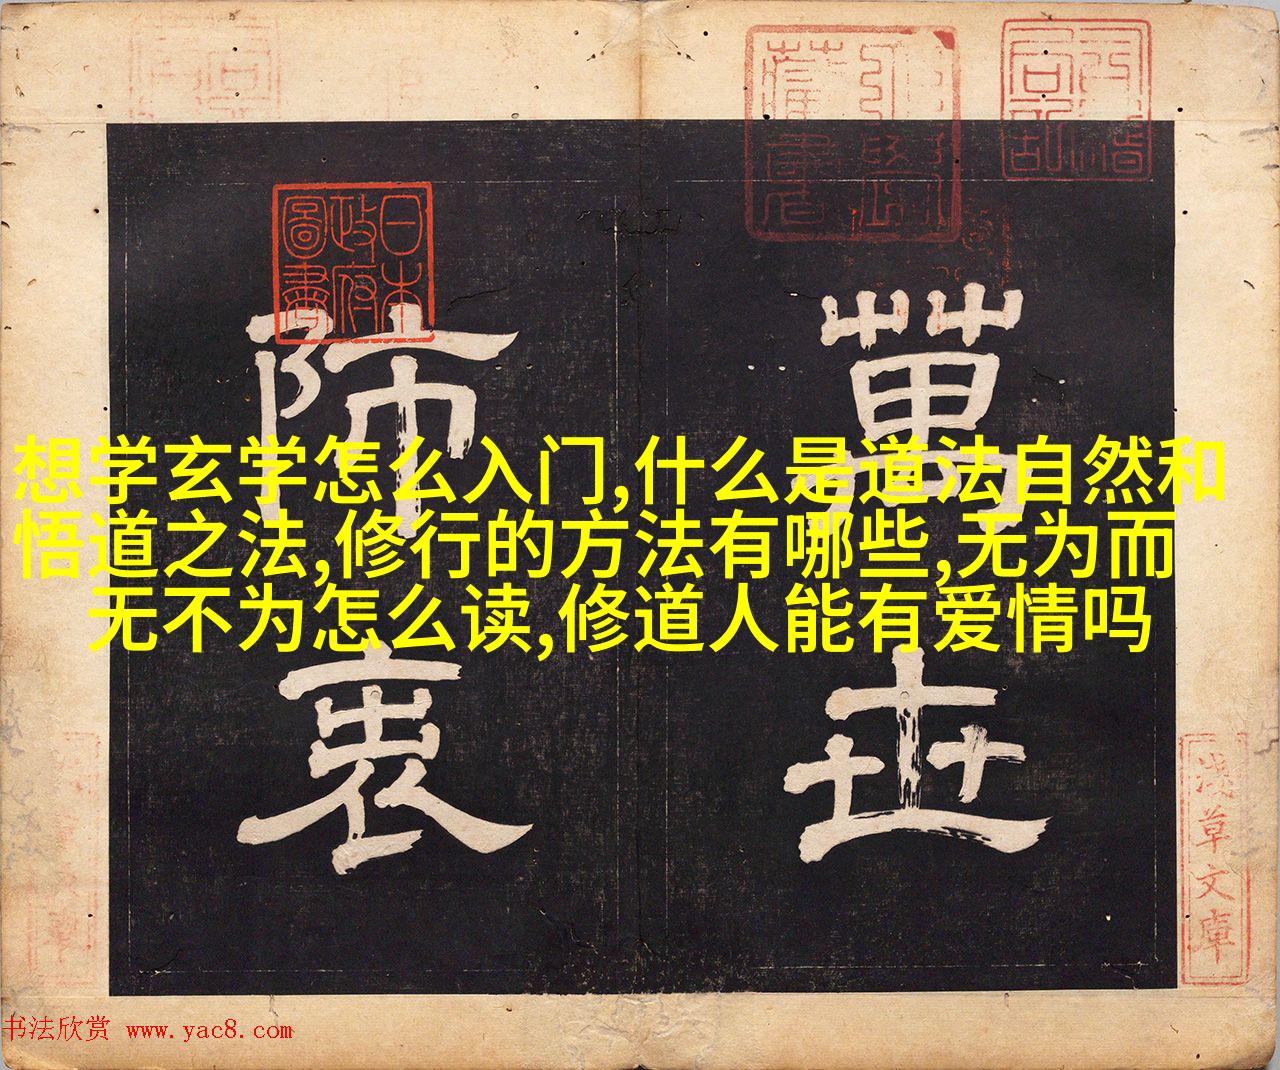 日本政府圖書
萬世
師表
想学玄学怎么入门,什么是道法自然和
悟道之法,修行的方法有哪些,无为而
无不为怎么读,修道人能有爱情吗
淺草文庫
书法欣赏 www.yac8.com